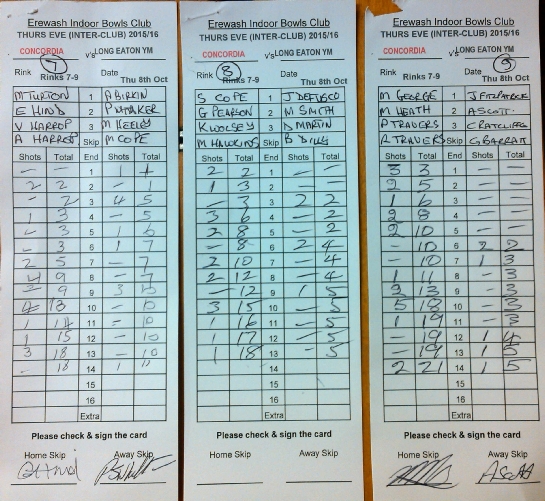 Erewash Indoor Bowls Club
THURS EVE (INTER-CLUB) 2015/16
CONCORDIA v's LONG EATON YM
Rink 7 Rinks 7-9 Date Thu 8th Oct
M TURTON 1 A BIRKIN
E HIND 2 P WHITAKER
V HARROP 3 M KEELEY
A HARROP Skip M COPE
Shots Total End Shots Total
- - 1 1 1
2 2 2 - 1
- 2 3 4 5
1 3 4 - 5
- 3 5 1 6
- 3 6 1 7
2 5 7 - 7
4 9 8 - 7
- 9 9 3 10
4 13 10 - 10
1 14 11 - 10
1 15 12 - 10
3 18 13 - 10
- 18 14 1 11
15
16
Extra
Please check & sign the card
Home Skip Away Skip
Erewash Indoor Bowls Club
THURS EVE (INTER-CLUB) 2015/16
CONCORDIA v's LONG EATON YM
Rink 8 Rinks 7-9 Date Thu 8th Oct
S COPE 1 J DEFUSCO
G PEARSON 2 M SMITH
K WOOLSEY 3 D MARTIN
M HAWKINS Skip B DILLY
Shots Total End Shots Total
2 2 1 - -
1 3 2 - -
- 3 3 2 2
3 6 4 - 2
2 8 5 - 2
- 8 6 2 4
2 10 7 - 4
2 12 8 - 4
- 12 9 1 5
3 15 10 - 5
1 16 11 - 5
1 17 12 - 5
1 18 13 - 5
14
15
16
Extra
Please check & sign the card
Home Skip Away Skip
Erewash Indoor Bowls Club
THURS EVE (INTER-CLUB) 2015/16
CONCORDIA v's LONG EATON YM
Rink Rinks 7-9 Date 9 Thu 8th Oct
M GEORGE 1 J FITZPATRICK
M HEATH 2 A SCOTT
P TRAVERS 3 C RATCLIFFE
R TRAVERS Skip G BARRATT
Shots Total End Shots Total
3 3 1 - -
2 5 2 - -
1 6 3 - -
2 8 4 - -
2 10 5 - -
- 10 6 2 2
- 10 7 1 3
1 11 8 - 3
2 13 9 - 3
5 18 10 - 3
1 19 11 - 3
- 19 12 1 4
- 19 13 1 5
2 21 14 1 5
15
16
Extra
Please check & sign the card
Home Skip Away Skip